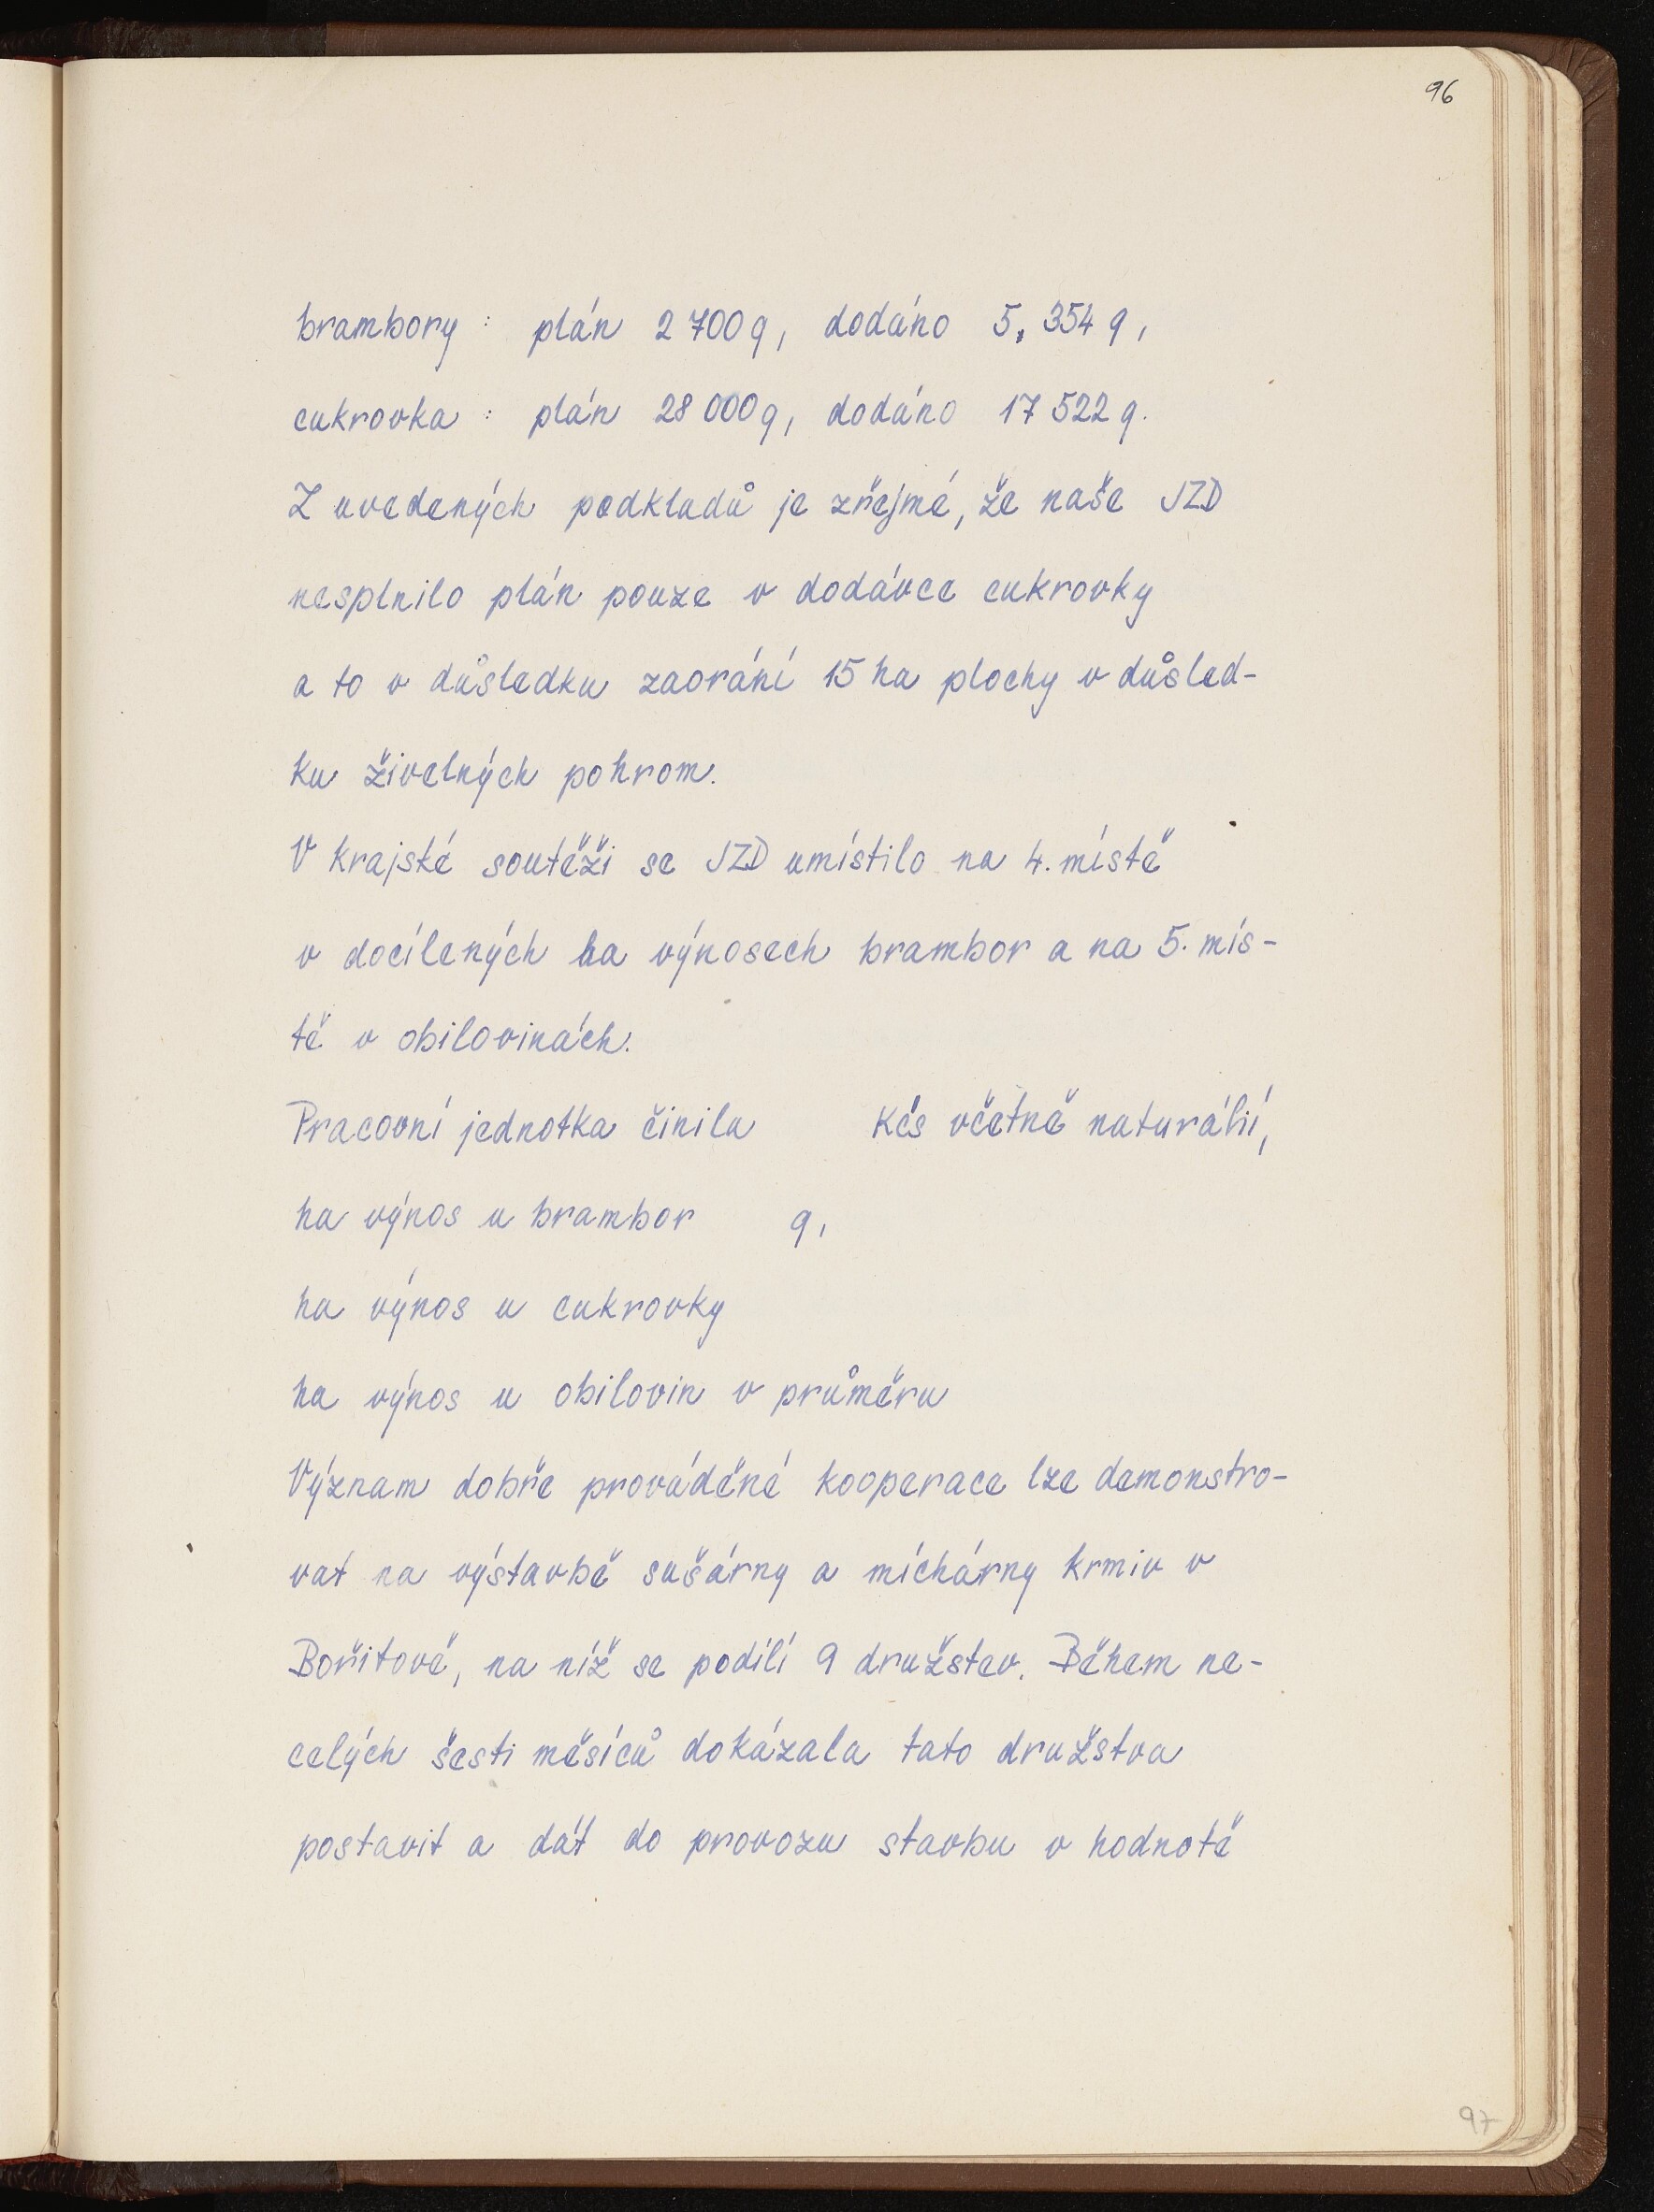 96
brambory : plán 2 700 q, dodáno 5. 354 q,
cukrovka : plán 28 000 q, dodáno 17 522 q.
Z uvedených podkladů je zřejmé, že naše JZD
nesplnilo plán pouze v dodávce cukrovky
a to v důsledku zaorání 15 ha plochy v důsled-
ku živelných pohrom.
V krajské soutěži se JZD umístilo na 4. místě
v docílených ha výnosech brambor a na 5. mís-
tě v obilovinách.
Pracovní jednotka činila Kčs včetně naturálií,
ha výnos u brambor q,
ha výnos u cukrovky
ha výnos u obilovin v průměru
Význam dobře prováděné kooperace lze demonstro-
vat na výstavbě sušárny a míchárny krmiv v
Bořitově, na níž se podílí 9 družstev. Během ne-
celých šesti měsíců dokázala tato družstva
postavit a dát do provozu stavbu v hodnotě
97